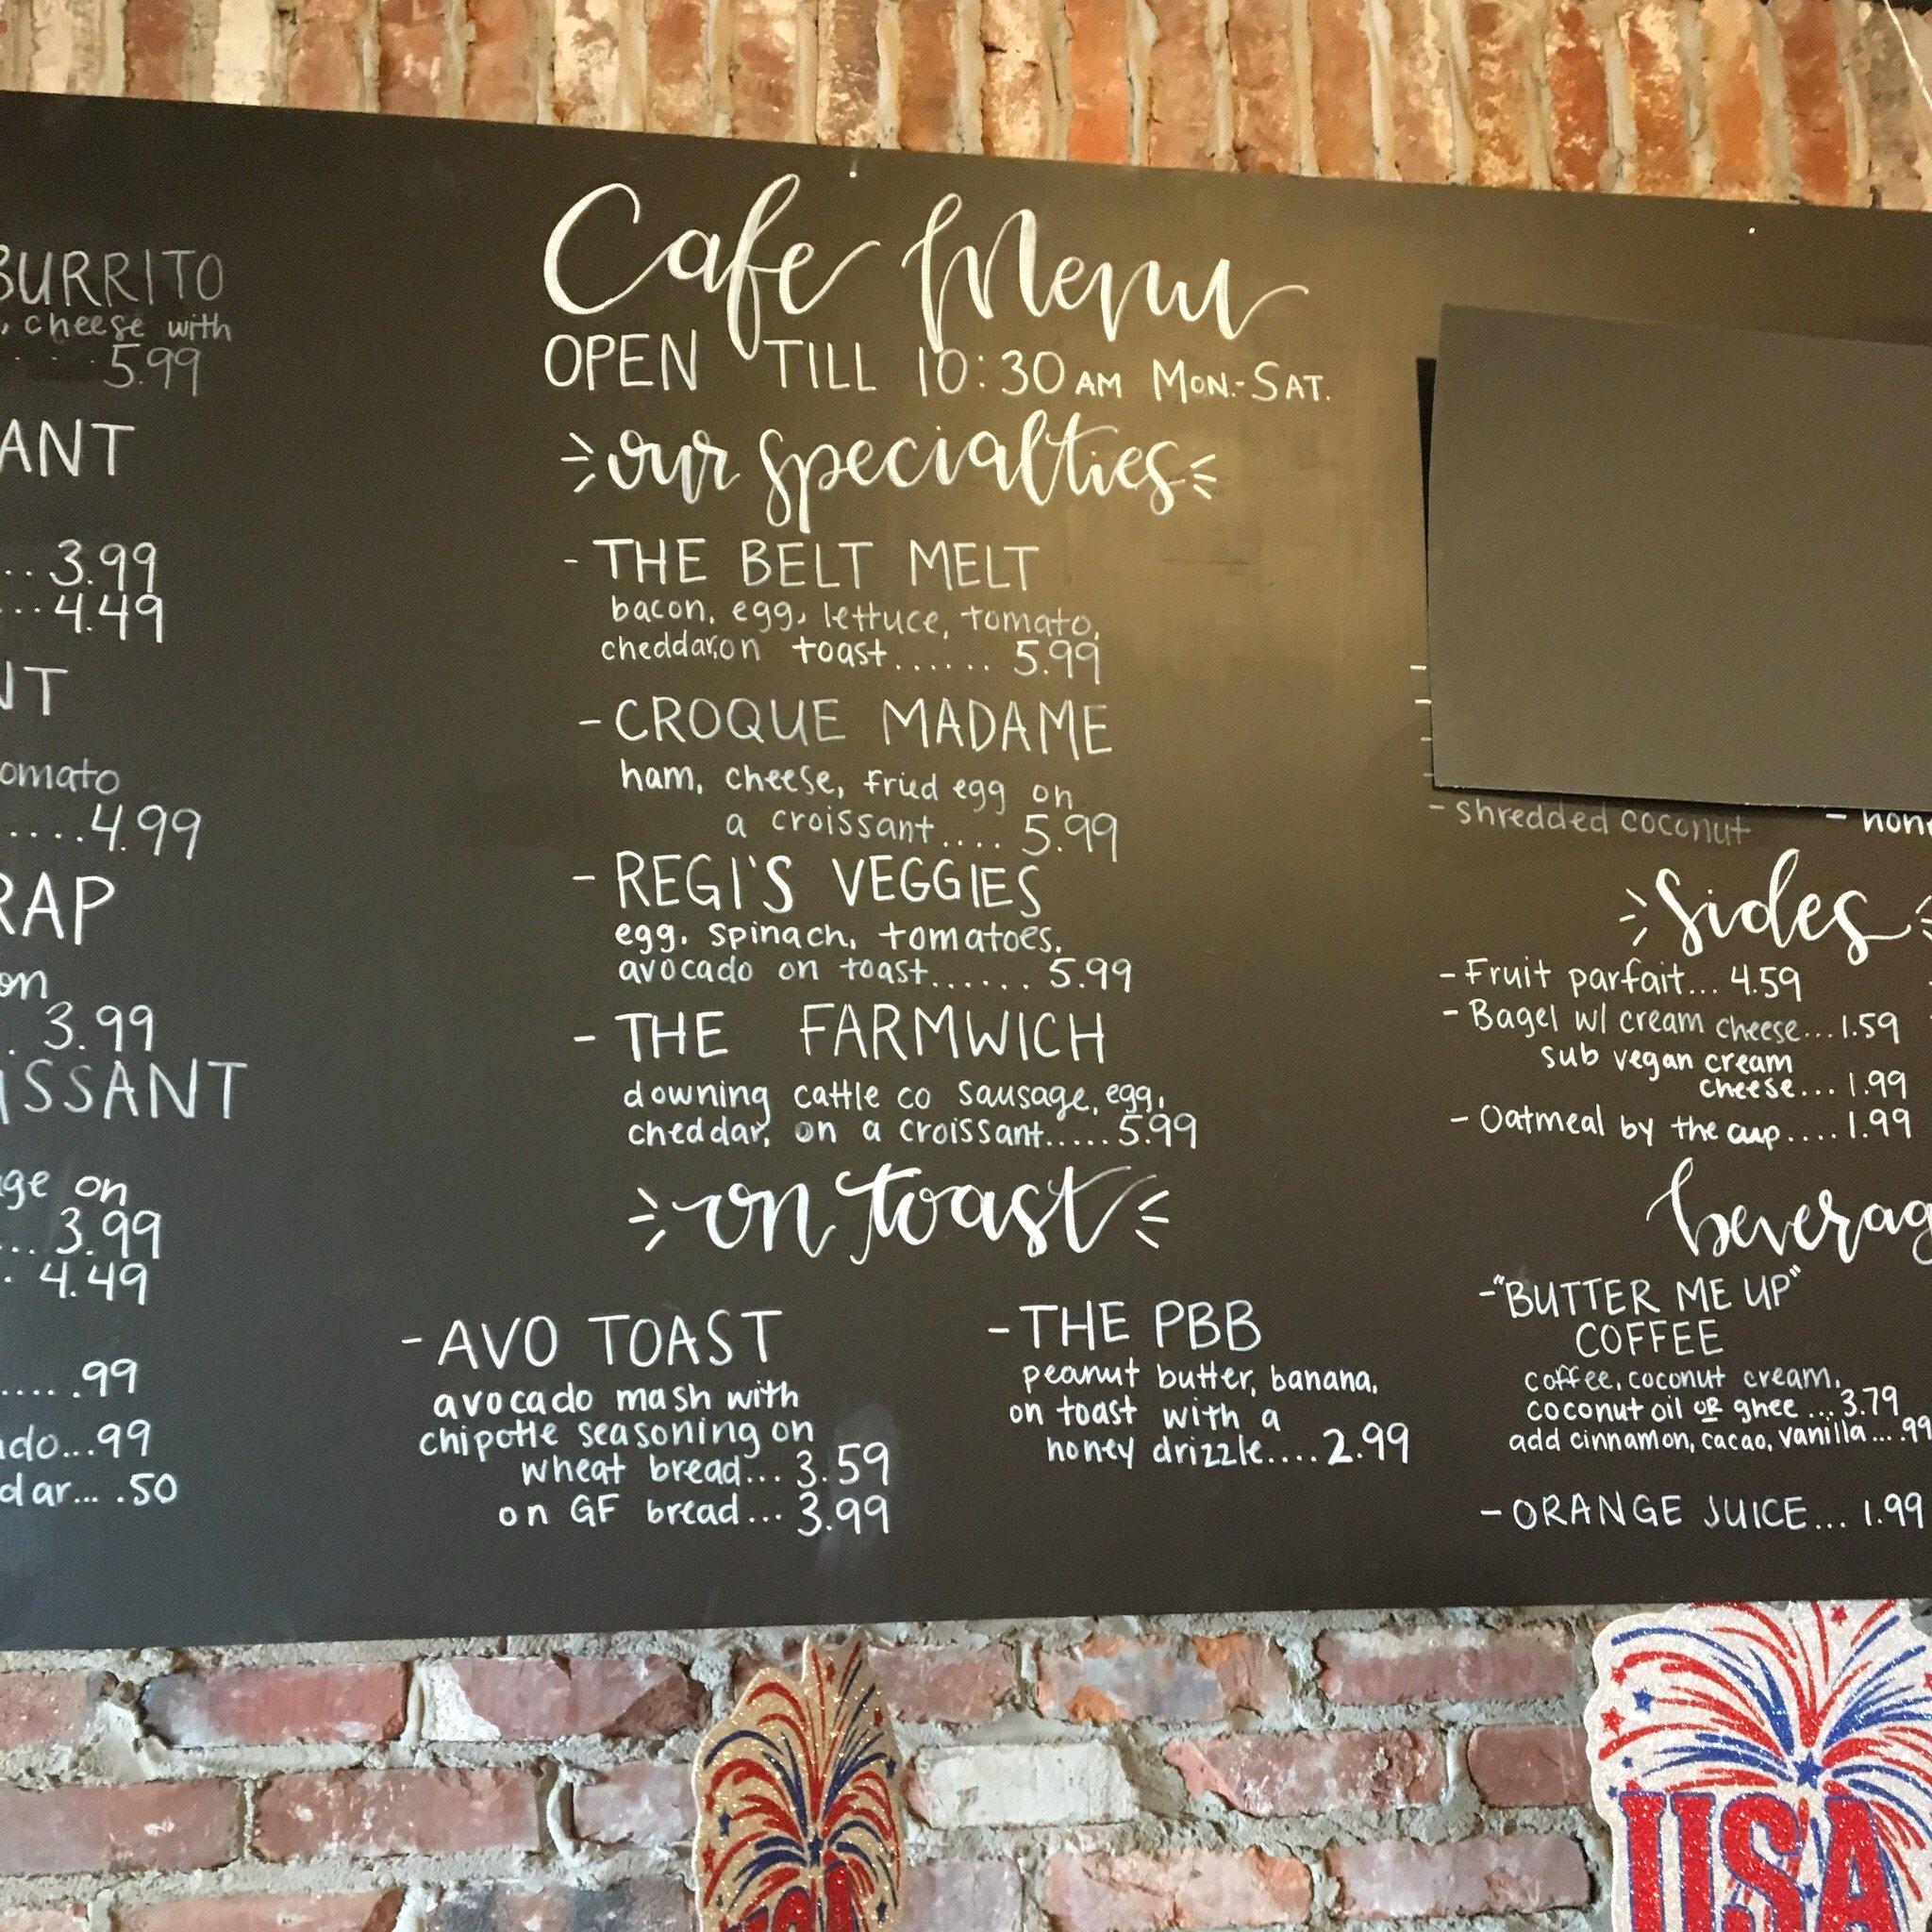 BURRITO
, cheese with
.....5.99
ANT
..3.99
...4.49
NT
omato
....4.99
RAP
on
. 3.99
ISSANT
ge on
...3.99
. 4.49
.....99
do...99
dar... .50
Cafe Menu
OPEN TILL 10:30 AM MON.-SAT.
our specialties
- THE BELT MELT
bacon, egg, lettuce, tomato,
cheddar, on toast...... 5.99
- CROQUE MADAME
ham, cheese, fried egg on
a croissant.... 5.99
- REGI'S VEGGIES
egg, spinach, tomatoes,
avocado on toast...... 5.99
- THE FARMWICH
downing cattle co sausage, egg,
cheddar, on a croissant.....5.99
on toast
- AVO TOAST
avocado mash with
chipotle seasoning on
wheat bread... 3.59
on GF bread... 3.99
- THE PBB
peanut butter, banana,
on toast with a
honey drizzle....2.99
- shredded coconut - hon
sides
- Fruit parfait... 4.59
- Bagel w/ cream cheese...1.59
sub vegan cream
cheese... 1.99
- Oatmeal by the cup.... 1.99
beverag
- "BUTTER ME UP"
COFFEE
coffee, coconut cream,
coconut oil OR ghee ...3.79
add cinnamon, cacao, vanilla... .99
- ORANGE JUICE... 1.99
USA
USA